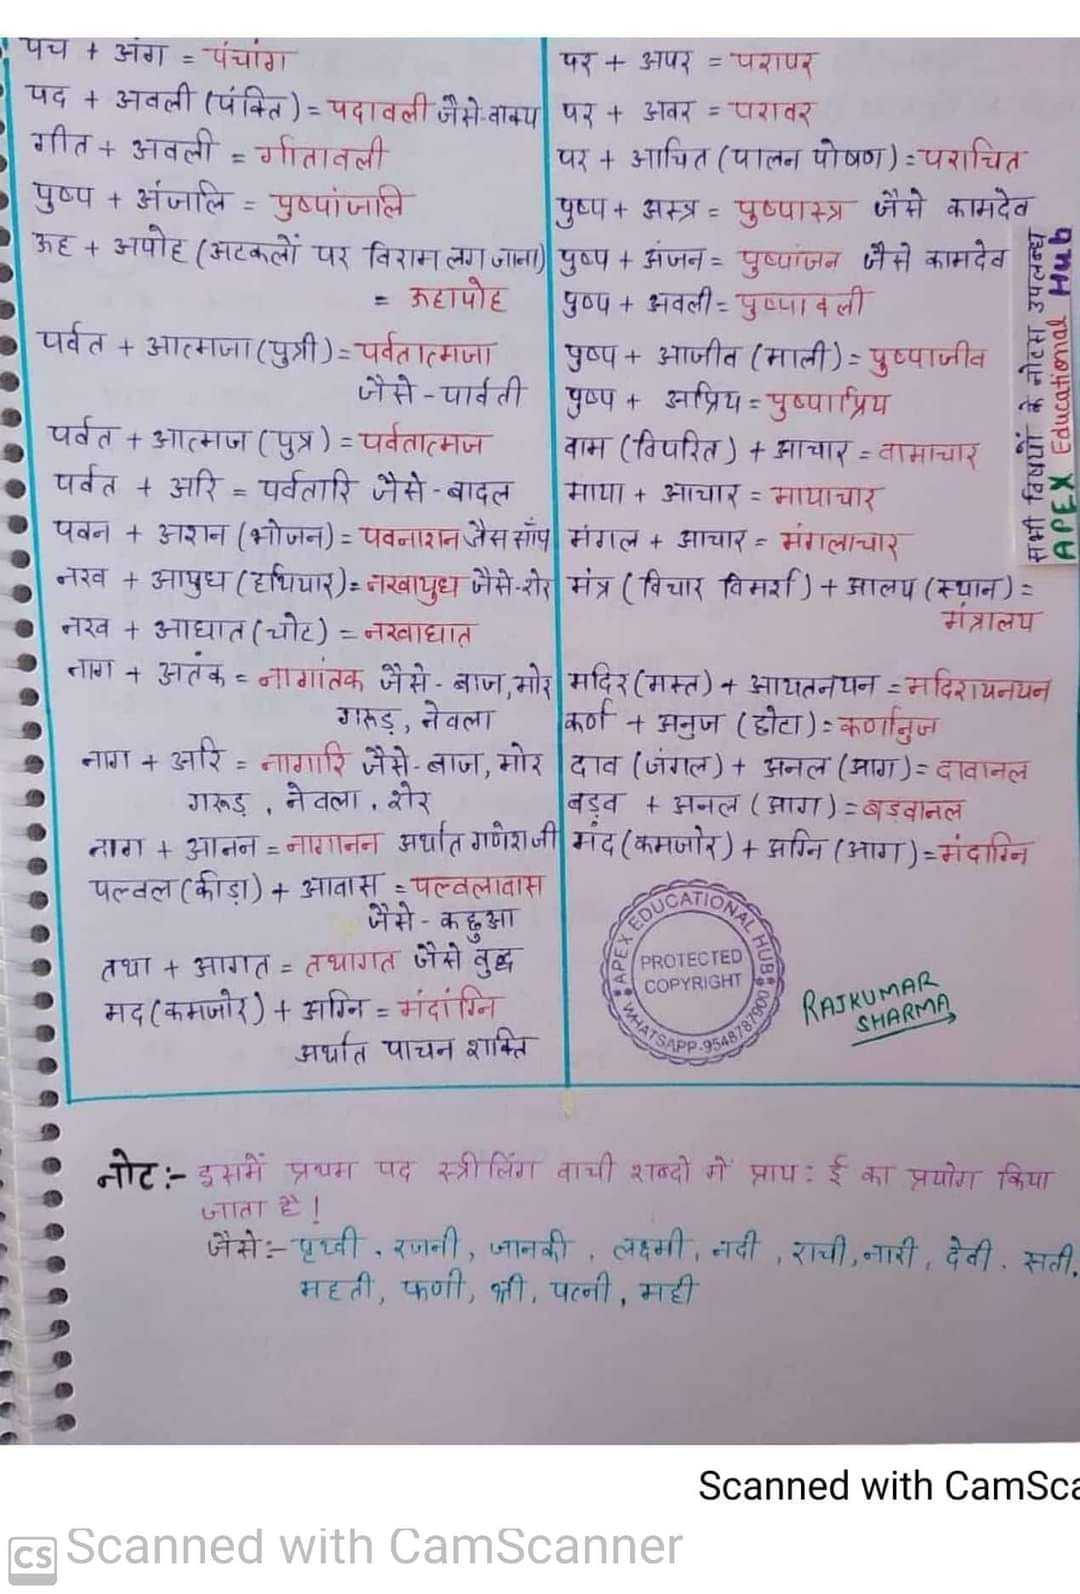 पंच + अंग = पंचांग
पद + अवली (पंक्ति) = पदावली जैसे-वाक्य
गीत + अवली = गीतावली
पुष्प + अंजलि = पुष्पांजलि
ऊह + अपोह (अटकलों पर विराम लग जाना)
= ऊहापोह
पर्वत + आत्मजा (पुत्री) = पर्वतात्मजा
जैसे - पार्वती
पर्वत + आत्मज (पुत्र) = पर्वतात्मज
पर्वत + अरि = पर्वतारि जैसे - बादल
पवन + अशन (भोजन) = पवनाशन जैसे साँप
नख + आयुध (हथियार) = नखायुध जैसे-शेर
नख + आघात (चोट) = नखाघात
नाग + अतंक = नागांतक जैसे - बाज, मोर
गरूड़, नेवला
नाग + अरि = नागारि जैसे-बाज, मोर
गरूड़, नेवला, शेर
नाग + आनन = नागानन अर्थात गणेशजी
पल्वल (कीड़ा) + आवास = पल्वलावास
जैसे - कछुआ
तथा + आगत = तथागत जैसे बुद्ध
मद (कमजोर) + अग्नि = मंदांग्नि
अर्थात पाचन शक्ति
पर + अपर = परापर
पर + अवर = परावर
पर + आचित (पालन पोषण) = पराचित
पुष्प + अस्त्र = पुष्पास्त्र जैसे कामदेव
पुष्प + अंजन = पुष्पांजन जैसे कामदेव
पुष्प + अवली = पुष्पावली
पुष्प + आजीव (माली) = पुष्पाजीव
पुष्प + अप्रिय = पुष्पाप्रिय
वाम (विपरित) + आचार = वामाचार
माया + आचार = मायाचार
मंगल + आचार = मंगलाचार
मंत्र (विचार विमर्श) + आलय (स्थान) =
मंत्रालय
मदिर (मस्त) + आयतनयन = मदिरायनयन
कर्ण + अनुज (छोटा) = कर्णानुज
दाव (जंगल) + अनल (आग) = दावानल
बड़व + अनल (आग) = बड़वानल
मंद (कमजोर) + अग्नि (आग) = मंदाग्नि
सभी विषयों के नोटस उपलब्ध
APEX Educational Hub
APEX EDUCATIONAL HUB
PROTECTED
COPYRIGHT
WHATSAPP-9548787900
RAJKUMAR
SHARMA
नोट :- इसमें प्रथम पद स्त्रीलिंग वाची शब्दो में प्राय: ई का प्रयोग किया
जाता है !
जैसे :- पृथ्वी, रजनी, जानकी, लक्ष्मी, नदी, शची, नारी, देवी, सती,
महती, फणी, श्री, पत्नी, मही
Scanned with CamSca
CS Scanned with CamScanner